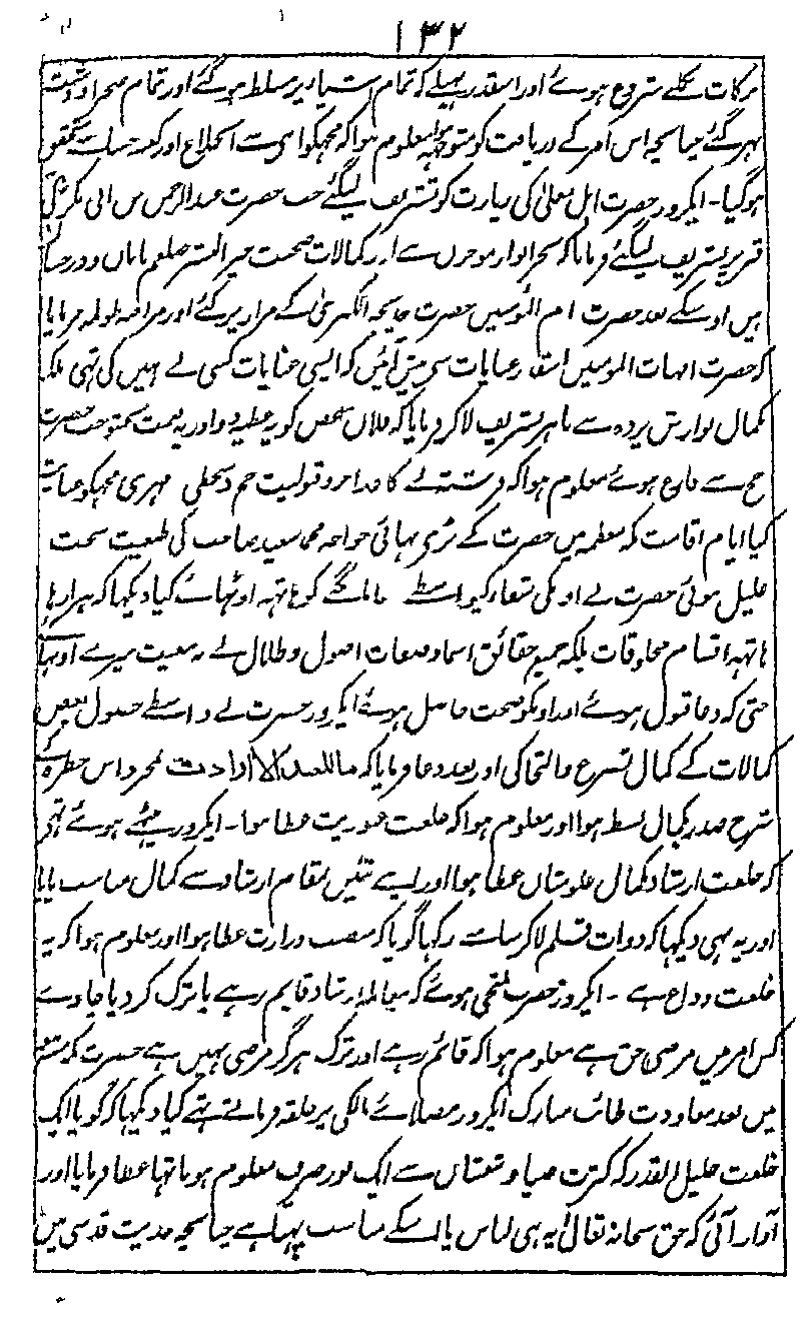 ۱۳۲
برکات نکلے شروع ہوئے اور اسقدر پہیلے کہ تمام اشیاء پر مسلط ہو گئے اور تمام صحرا و دشت
بہر گئے چنانچہ اس امر کے دریافت کو متوجہ ہوا معلوم ہوا کہ مجہکو اسی سے اور کعبہ حسنات سے
ہو گیا۔ ایکروز حضرت اہل معلیٰ کی زیارت کو تشریف لیگئے جب حضرت عبدالرحمن بن ابی بکر کی
قبر پر تشریف لیگئے فرمایا کہ بحر انوار موجزن ہے اور کمالات صحبت خیر البشر صلعم
ہیں اوسکے بعد حضرت ام المومنین حضرت خدیجہ الکبریٰ کے مزار پر گئے اور مراقبہ فرمایا
کہ حضرت امہات المومنین اسقدر عنایات سے پیش آئیں کہ ایسی عنایات کسی نے نہیں کی تہی بلکہ
کمال نوازش پردہ سے باہر تشریف لا کر فرمایا کہ فلاں شخص کو یہ عطیہ دو اور یہ جب حضرت
حج سے فارغ ہوئے معلوم ہوا کہ فرشتہ نے کاغذ قبولیت حج دستخطی مہری مجہکو عنایت
کیا ایام اقامت مکہ معظمہ میں حضرت کے بڑے بہائی خواجہ محمد سعید صاحب کی طبیعت سخت
علیل ہوئی حضرت نے اونکی شفا کیواسطے دعا مانگنے کو ہاتہہ اوٹہائے کیا دیکہا کہ ہزارہا
ہاتہہ اقسام مخلوقات بلکہ جمیع حقائق اسما و صفات اصول و ظلال نے بہ معیت میرے اوٹہائے
حتی کہ دعا قبول ہوئے اور اونکو صحت حاصل ہوئے ایکروز حضرت نے واسطے حصول بعض
کمالات کے کمال تضرع و التجا کی اور بعد دعا فرمایا کہ بمجرد اس خطرہ کے
شرح صدر بکمال بسط ہوا اور معلوم ہوا کہ خلعت عطا ہوا۔ ایکروز بیٹہے ہوئے تہے
کہ خلعت ارشاد بکمال علو شان عطا ہوا اور اپنے تئیں بمقام ارشاد سے کمال مناسب پایا
اور یہ بہی دیکہا کہ دوات قلم لا کر سامنے رکہا گویا کہ منصب وزارت عطا ہوا اور معلوم ہوا کہ یہ
خلعت وداع ہے۔ ایکروز حضرت ملتجی ہوئے کہ معاملہ ارشاد قایم رہے یا ترک کر دیا جاوے
کس امر میں مرضی حق ہے معلوم ہوا کہ قائم رہے اور ترک ہرگز مرضی نہیں ہے حضرت مکہ معظمہ
میں بعد معاودت طائف مبارک ایکروز مصلائے مالکی پر حلقہ فرمائے تہے کیا دیکہا کہ گویا ایک
خلعت جلیل القدر کہ کثرت ضیا و شعشان سے ایک نور صرف معلوم ہوتا تہا عطا فرمایا اور
آواز آئی کہ حق سبحانہ تعالیٰ یہ ہی لباس یا اسکے مناسب پہنتا ہے چنانچہ حدیث قدسی میں